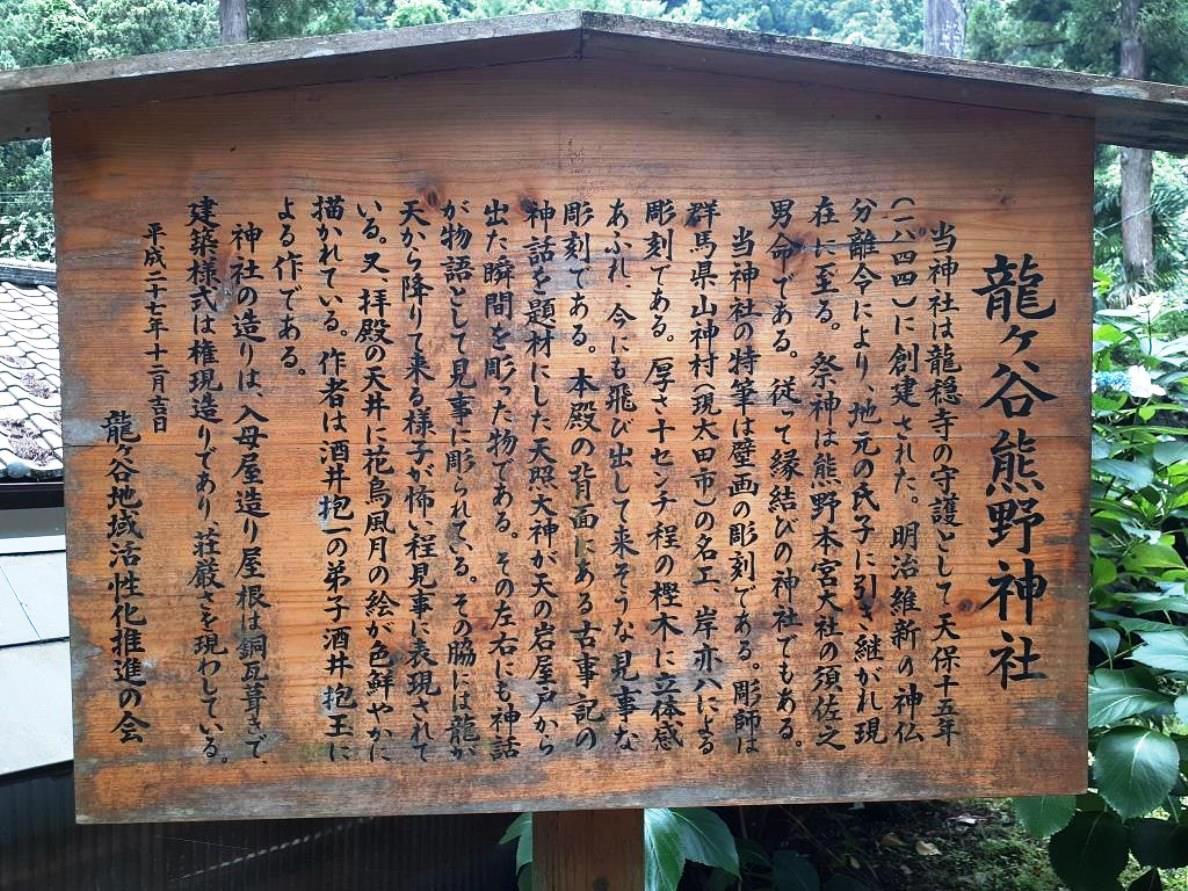 龍ヶ谷熊野神社
当神社は龍穏寺の守護として天保十五年
(一八四四)に創建された。明治維新の神仏
分離令により、地元の氏子に引き継がれ現
在に至る。祭神は熊野本宮大社の須佐之
男命である。従って縁結びの神社でもある。
当神社の特筆は壁画の彫刻である。彫師は
群馬県山神村(現太田市)の名工、岸亦八による
彫刻である。厚さ十センチ程の樫木に立体感
あふれ、今にも飛び出して来そうな見事な
彫刻である。本殿の背面にある古事記の
神話を題材にした天照大神が天の岩屋戸から
出た瞬間を彫った物である。その左右にも神話
が物語として見事に彫られている。その脇には龍が
天から降りて来る様子が怖い程見事に表現されて
いる。又、拝殿の天井に花鳥風月の絵が色鮮やかに
描かれている。作者は酒井抱一の弟子酒井抱玉に
よる作である。
神社の造りは、入母屋造り屋根は銅瓦葺きで、
建築様式は権現造りであり、荘厳さを現わしている。
平成二十七年十二月吉日
龍ヶ谷地域活性化推進の会